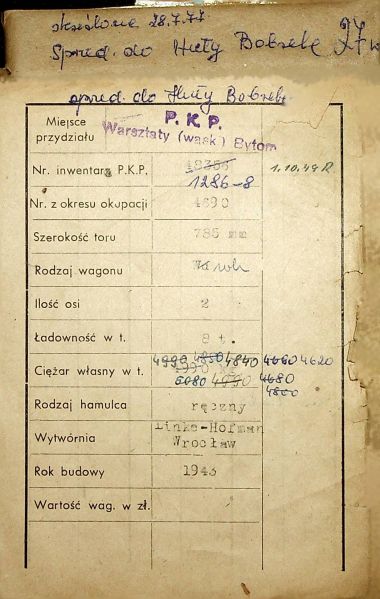 skreślono 28.7.77
Sprzed. do Huty Bobrek
sprzed. do Huty Bobrek
Miejsce przydziału P.K.P.
Warsztaty (wąsk.) Bytom
Nr. inwentarza P.K.P. 1.10.49 R
1286-8
Nr. z okresu okupacji 4690
Szerokość toru 785 mm
Rodzaj wagonu
Ilość osi 2
Ładowność w t. 8 t.
4990 4850 4840 4660 4620
Ciężar własny w t. 4990
5080 4990 4680
4800
Rodzaj hamulca ręczny
Wytwórnia Linke-Hofman
Wrocław
Rok budowy 1943
Wartość wag. w zł.